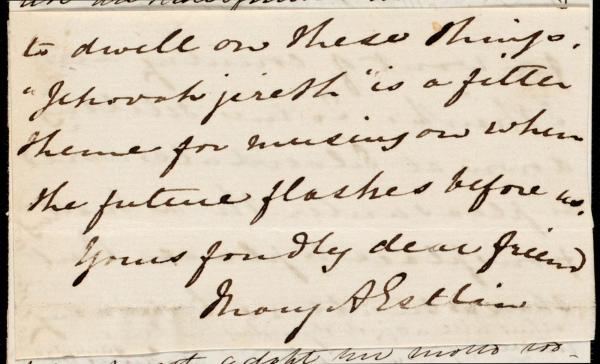 to dwell on these things.
"Jehovah jireth" is a fitter
theme for musing on when
the future flashes before us.
Yours fondly dear friend
Mary A Estlin
adopt her motto too-